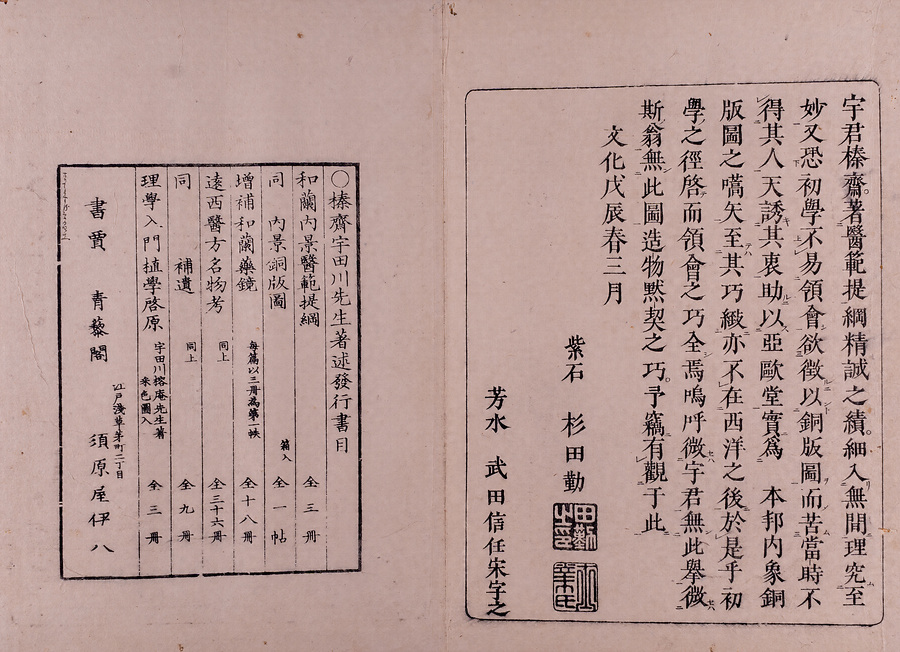 宇君榛齋著醫範提綱精誠之績細入無閒理究至
妙又恐初學不易領會欲徴以銅版圖而苦當時不
得其人天誘其衷助以亞歐堂實爲 本邦内象銅
版圖之嚆矢至其巧緻亦不在西洋之後於是乎初
學之徑啓而領會之巧全焉嗚呼微宇君無此擧微
斯翁無此圖造物黙契之巧予竊有觀于此
文化戊辰春三月
紫石 杉田勤
芳水 武田信任朱字之
○榛齊宇田川先生著述發行書目
和蘭内景醫範提綱 全三冊
同 内景銅版圖 箱入 全一帖
増補和蘭藥鏡 毎篇以三冊為第一帙 全十八冊
遠西醫方名物考 同上 全三十六冊
同 補遺 同上 全九冊
理學入門植學啓原 宇田川榕庵先生著 来色圖入 全三冊
江戸淺草茅町二丁目
書賈 青藜閣 須原屋伊八